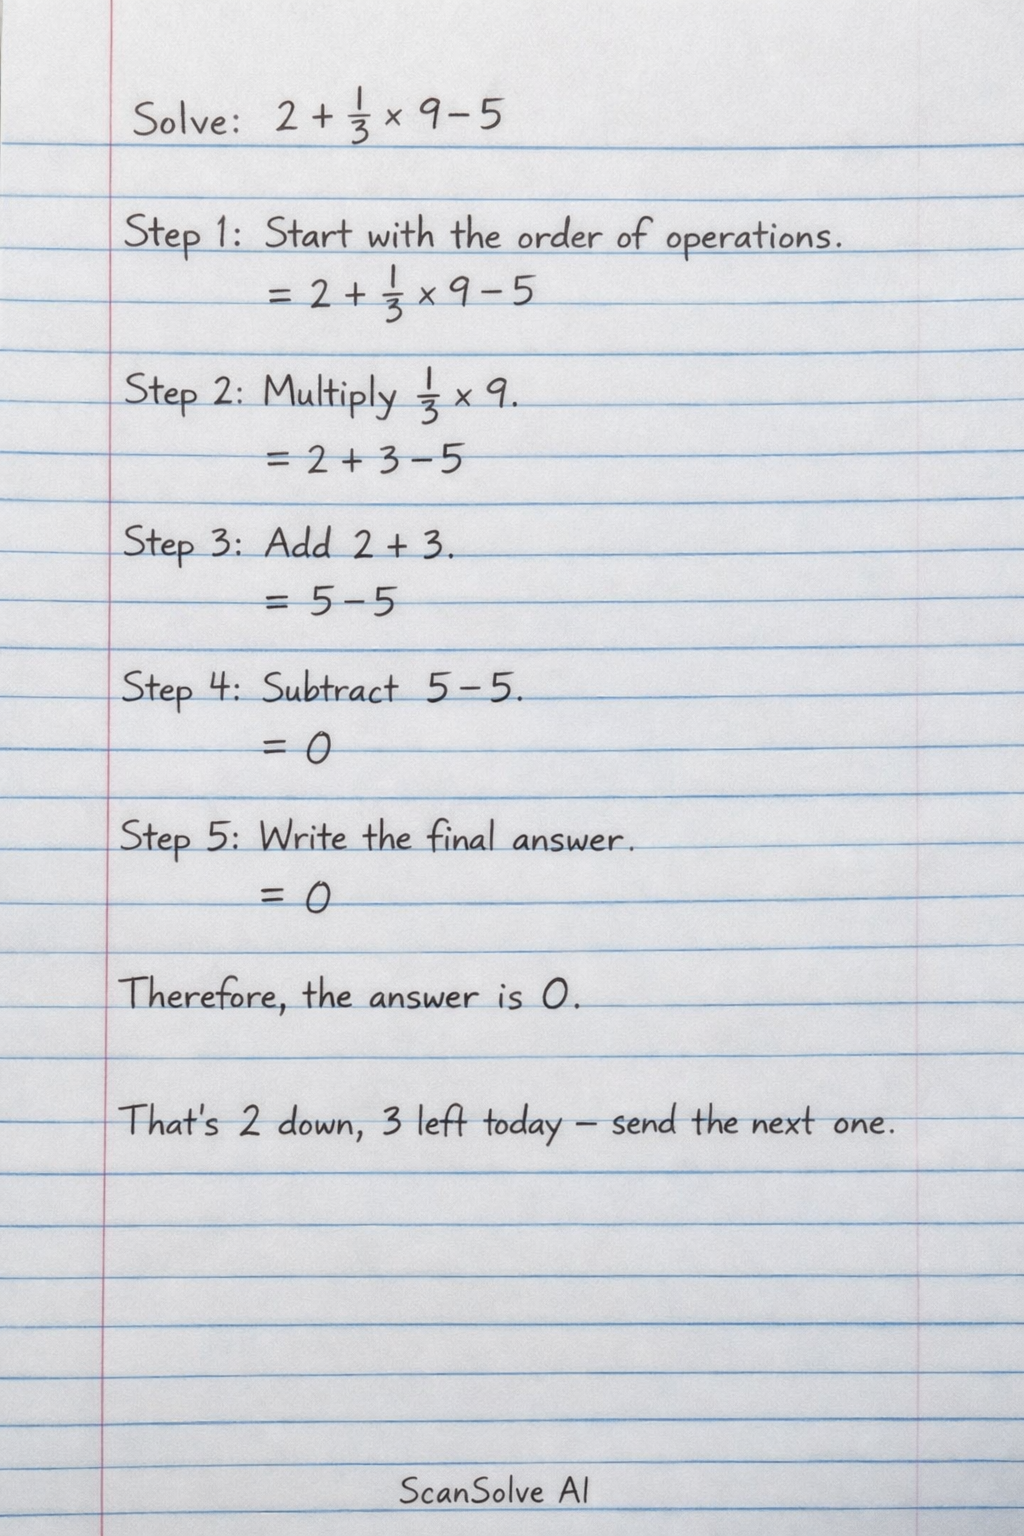 Solve: 2 + 1/3 × 9 − 5
Step 1: Start with the order of operations.
= 2 + 1/3 × 9 − 5
Step 2: Multiply 1/3 × 9.
= 2 + 3 − 5
Step 3: Add 2 + 3.
= 5 − 5
Step 4: Subtract 5 − 5.
= 0
Step 5: Write the final answer.
= 0
Therefore, the answer is 0.
That's 2 down, 3 left today – send the next one.
ScanSolve AI